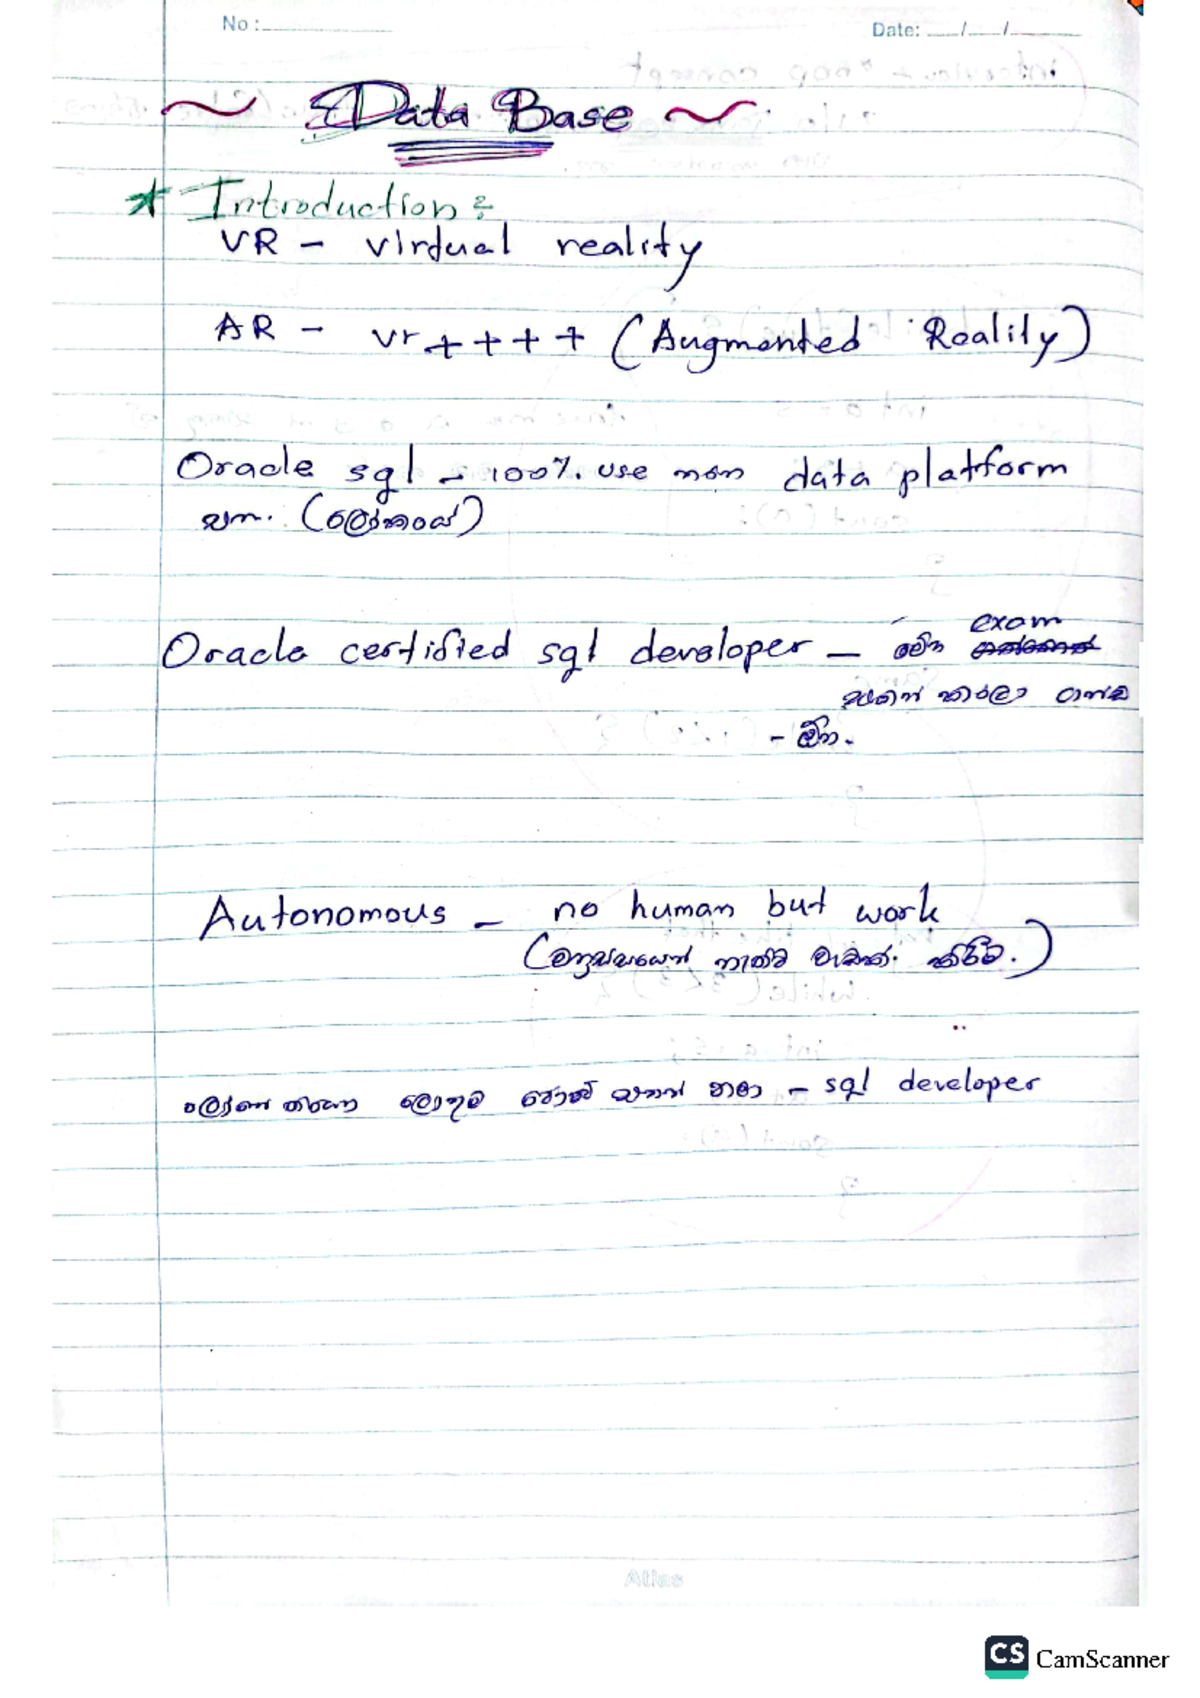 No :
Date: __/__/__
~ Data Base ~
* Introduction :
VR - virdual reality
AR - vr ++++ (Augmented Reality)
Oracle sql - 100% use data platform
(ලෝකයේ)
exam
Oracle certified sql developer - මේක
පාස් කරලා ගන්න
- ඕන.
Autonomous - no human but work
(මනුස්සයෙන් නැතිව වැඩක් කිරීම.)
ලෝකේ තියෙන ලොකුම - sql developer
Atlas
CS CamScanner